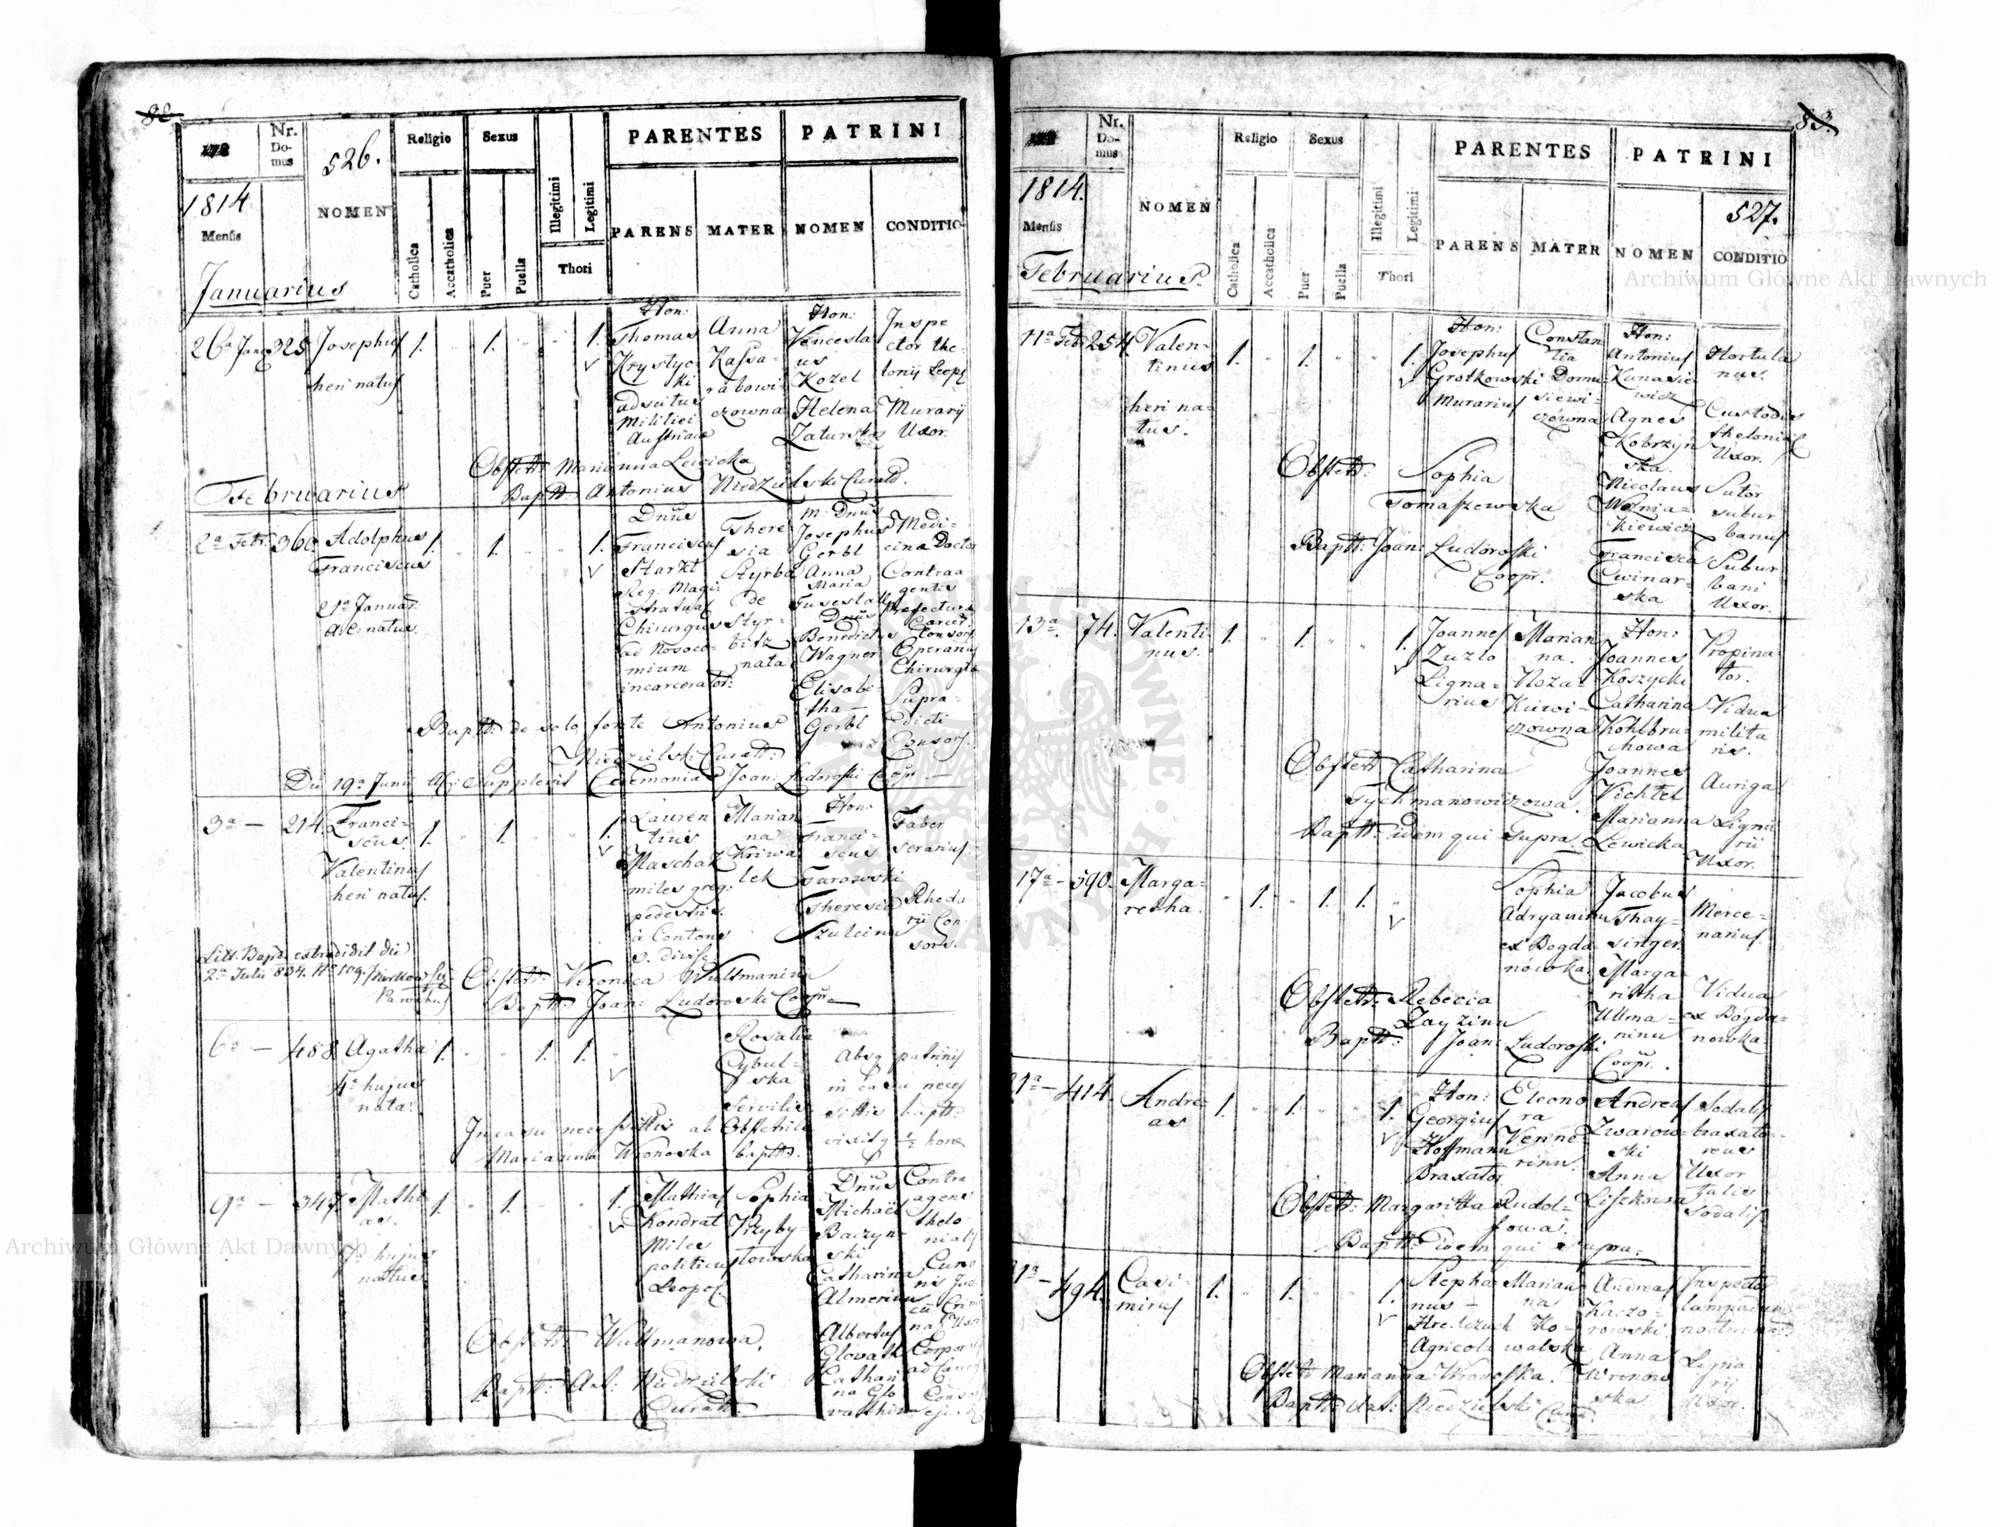 82.
178
Nr.
Do-
mus
526.
Religio
Sexus
PARENTES
PATRINI
1814
Mensis
NOMEN
Catholica
Accatholica
Puer
Puella
Illegitimi
Legitimi
Thori
PARENS
MATER
NOMEN
CONDITIO
Januarius
26a
325
Josephus
heri natus
1.
1.
1.
Hon:
Thomas
Krystyc-
ki
Militiei
Austriacæ
Anna
Hon:
Vencesla
us
Kozel
Helena
Zaturska
Inspe
ctor the-
lonij Leop:
Murarij
Uxor.
Obstetr: Marianna Lewicka
Baptt: Antonius Niedzielski Curatt.
Februarius
2a Febr. 360.
Adolphus
Franciscus
21a Januar:
a. c: natus.
1.
1.
1.
Dnus
Franciscus
Starzl
Reg: Magi-
stratus
Chirurgus
ad Nosoco-
mium
incarcerator:
There
sia
Styrba
de
Styr-
bitz
nata
M: Dnus
Josephus
Gerbl
Anna
Maria
Dnus
Benedictus
Wagner
Elisabe-
tha
Gerbl
Medi-
cina Doctor
Contraa
gentis
Præfectura
Carcer:
Consors.
Operanus
Chirurgiæ
Supra-
dicti
Consors.
Baptt: de solo fonte Antonius
Niedzielski Curatt:
Die 19a Junii a.c: Supplevit Ceremonias Joan: Ludoroski Coop:
3a — 214.
Franci-
scus
Valentinus
heri natus.
1.
1.
1.
Lauren
tius
Maschal
miles greg:
pedestris
à Contone
Marian
na
Kriwa
lek
Hon:
Franci-
scus
Tarowski
Theresia
Szulcinu
Faber
serarius.
Rheda
rii Con-
sors.
Litt. Bapt. extradidit die
2a Julii 834. No 109.
Obstetr: Veronica Wultmanina
Baptt: Joan: Ludoroski Coopr.
6a — 488
Agatha
4a hujus
nata.
1.
1.
1.
Rosalia
Cybul-
ska
Servilis
Absq patrinis
in casu neces
sitatis baptt:
vixitq ½ horæ
In casu necessitatis ab Obstetrice
Marianna Wronoska baptt:
9a — 347
Mathi
as.
7a hujus
natus
1.
1.
1.
Mathias
Kondrat
Miles
politicus
Leopol.
Sophia
Przyby-
towska
Dnus
Michaël
Baczyn-
ski
Catharina
Almerinu
Albertus
Glovatk
Cathari
na Glo
Contra
agens
thelo-
nialis
Obstetr: Wultmanowa.
Baptt: Ant: Niedzielski
Curatt:
83.
Nr.
Do-
mus
1814.
Mensis
NOMEN
Religio
Sexus
Catholica
Accatholica
Puer
Puella
Illegitimi
Legitimi
Thori
PARENTES
PATRINI
527.
PARENS
MATER
NOMEN
CONDITIO
Februarius.
11a Feb: 254.
Valen-
tinus
heri na-
tus.
1.
1.
1.
Hon:
Josephus
Grotkowski
Murarius
Constan
tia
Domu-
siewi-
czówna
Hon:
Antonius
Kunasie
wicz
Agnes
Kobrzyn
ska.
Nicolaus
Woznia-
kiewicz
Francisca
Cwinar-
ska
Hortula
nus.
Custodis
thelonial
Uxor.
Sutor
subur
banus
Subur
bani
Uxor.
Obstetr: Sophia
Tomaszewska
Baptt: Joan: Ludoroski
Coopr.
13a. 74.
Valenti-
nus.
1.
1.
1.
Joannes
Zuzlo
Ligna-
rius
Marian
na.
Noza-
Kiewi-
czowna
Hon:
Joannes
Koszycki
Catharina
Kohlbru-
chowa
Joannes
Vichtel
Marianna
Lewicka
Propina
tor.
Vidua
milita
ris.
Auriga
Ligna
rii
Uxor.
Obstetr: Catharina
Tychmanowiczowa.
Baptt: idem qui supra.
17a — 590.
Marga-
retha.
1.
1.
1.
Sophia
Adryaninu
ex Bogda
nówka
Jacobus
Thay-
singer.
Marga
ritha
Ullma-
ninu
Merce-
narius.
Vidua
ex Bogda-
nowka.
Obstetr: Rebecca
Zayzinu
Baptt: Joan: Ludoroski
Coopr.
21a — 414.
Andre-
as
1.
1.
1.
Hon:
Georgius
Hoffmann
Braxator
Eleono
ra
Venne
rinu.
Andreas
Zwarow-
ski
Anna
Lisikowska
Sodalis
braxato-
reus
Uxor
talis
Sodalis
Obstetr: Margaritta Rudol-
fowa.
Baptt: idem qui supra.
21a — 494.
Casi-
mirus
1.
1.
1.
Stepha
nus
Hreszczuk
Agricola
Marian
na
Ko-
walska
Andreas
Kaczo-
rowski.
Anna
Wronow
ska.
Inspector
lampadum
nocturnar:
Ligna
rij
Uxor.
Obstetr: Marianna Wronoska.
Baptt: Ant: Niedzielski Curatt.
Archiwum Główne Akt Dawnych
Archiwum Główne Akt Dawnych